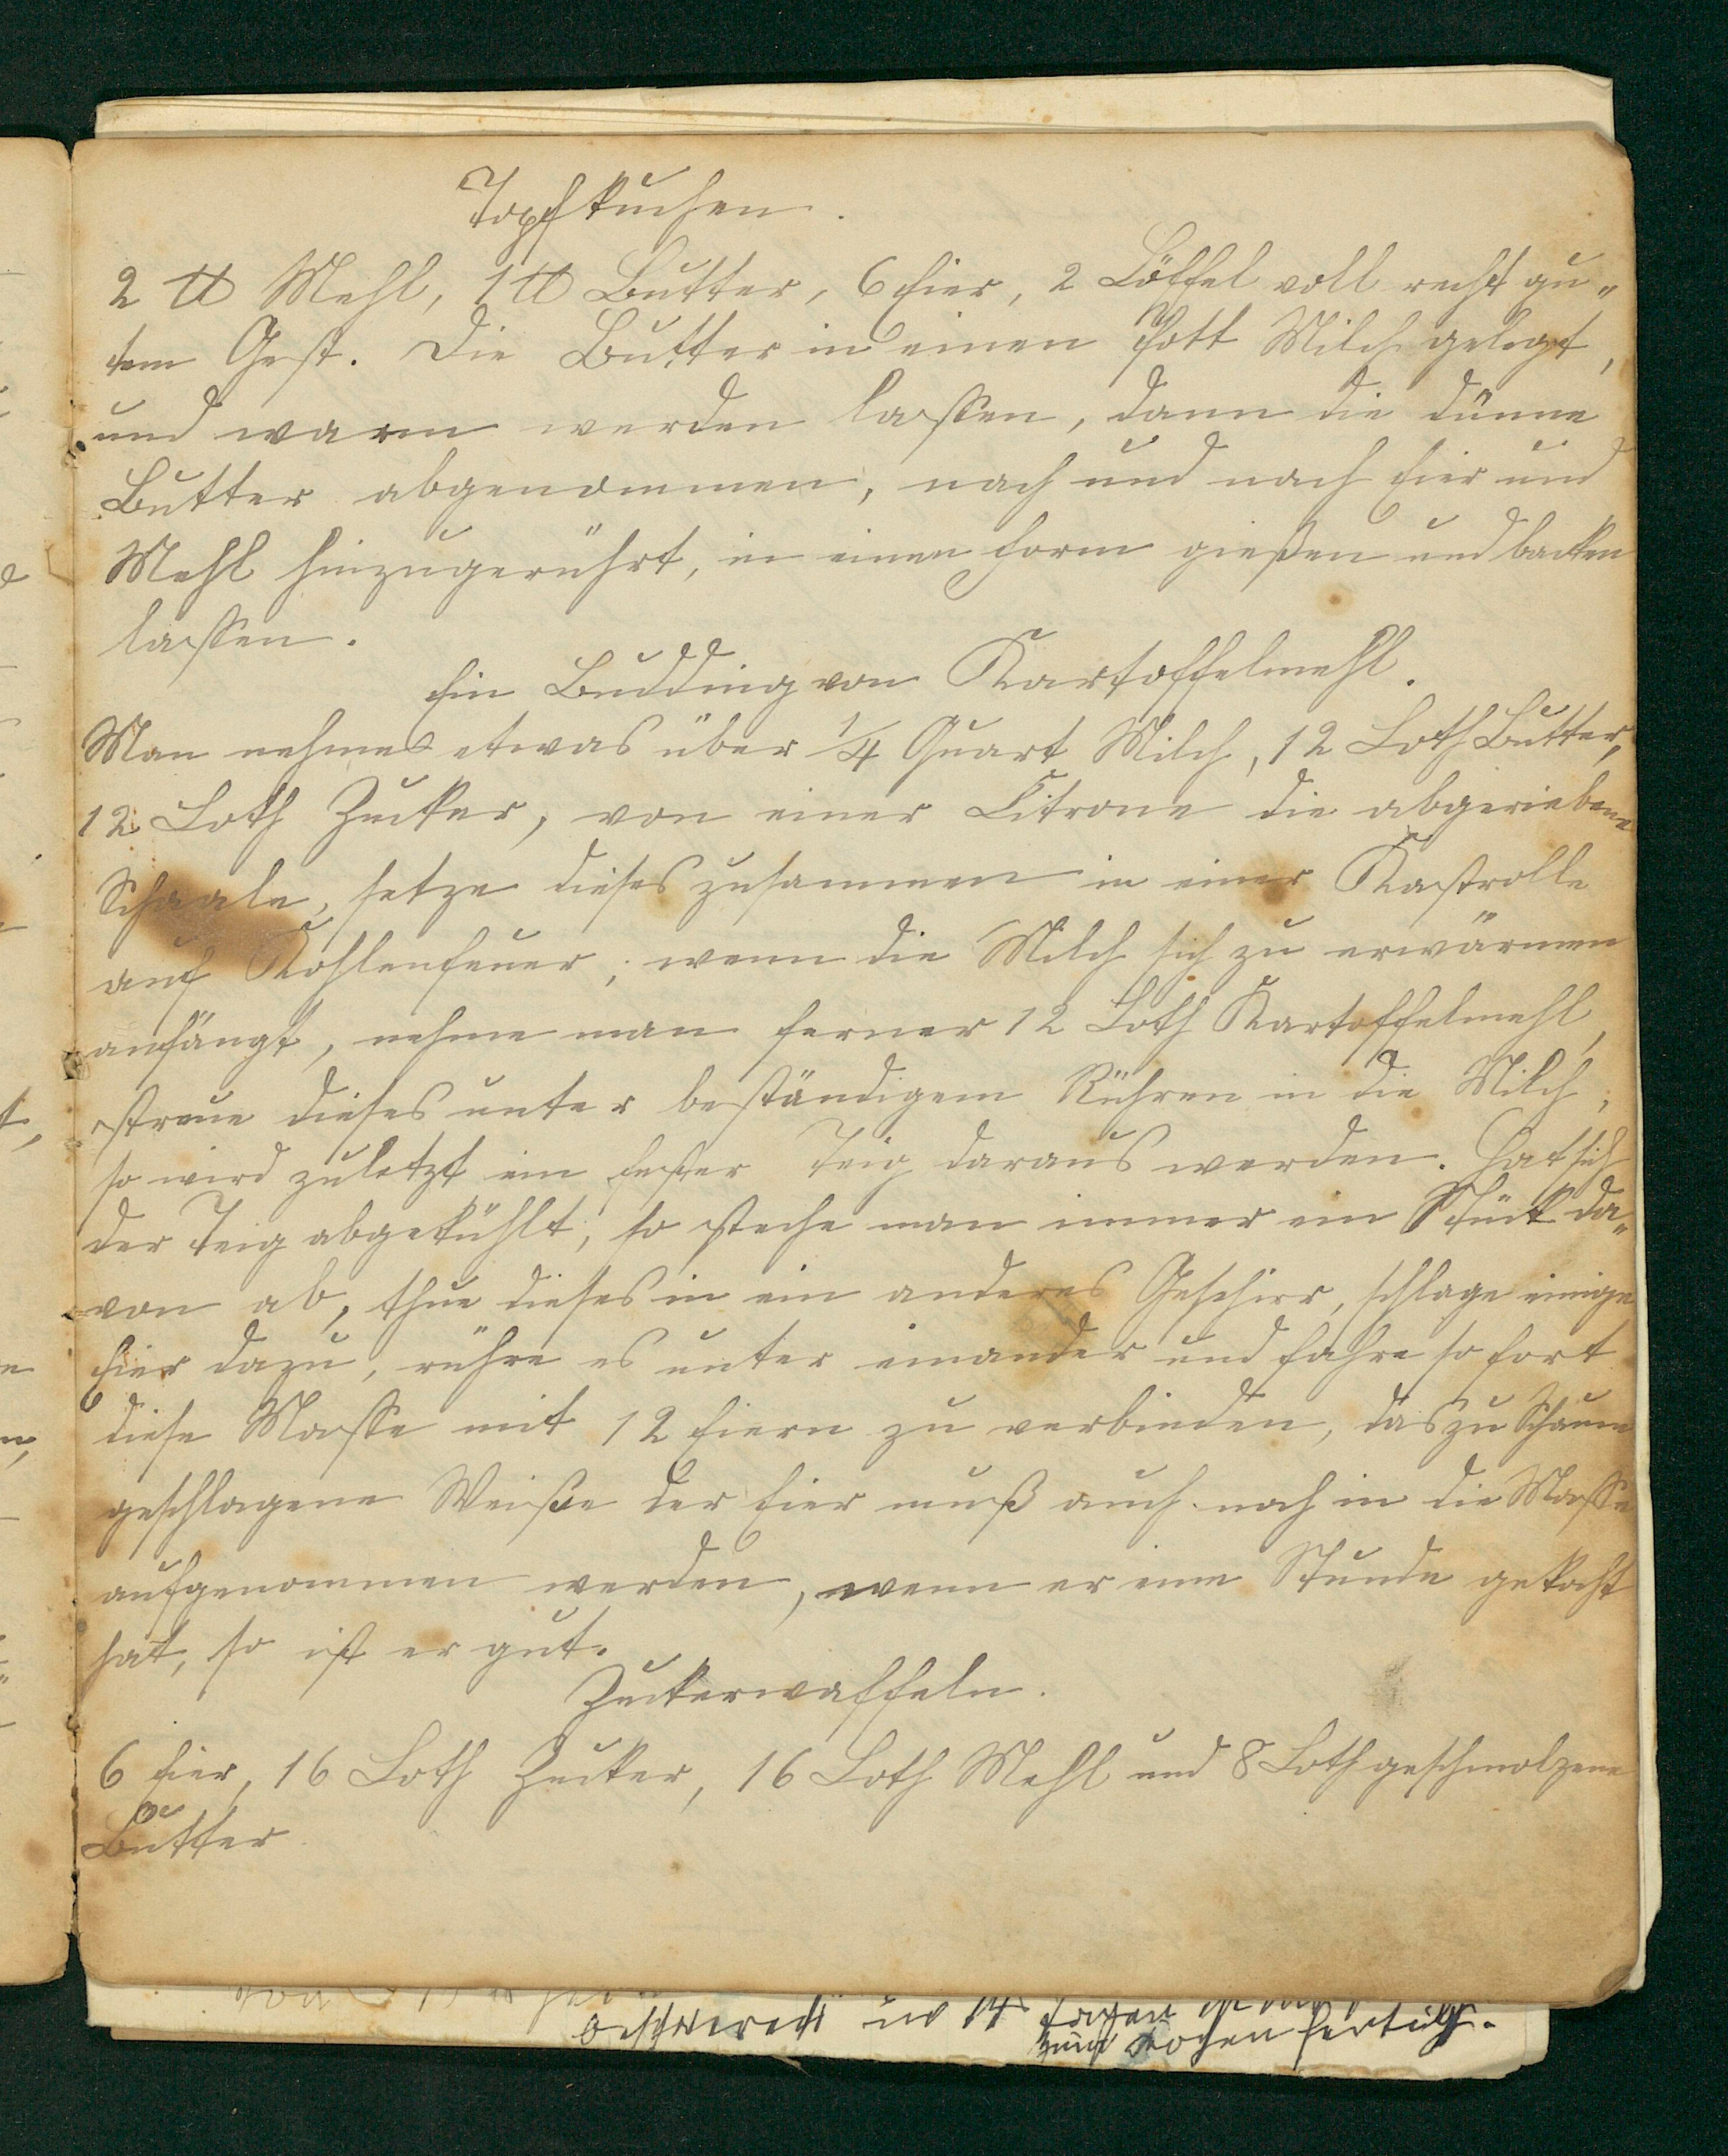 Topfkuchen.
2 ℔ Mehl, 1 ℔ Butter, 6 Eier, 2 Löffel voll recht gu„
tem Gest. Die Butter in einen Pott Milch gelegt,
und warm werden lassen, dann die dünne
Butter abgenommen, nach und nach Eier und
Mehl hinzugerührt, in einen Form gießen und backen
lassen.
Ein Budding von Kartoffelmehl.
Man nehme etwas über 1/4 Quart Milch, 12 Loth Butter,
12 Loth Zucker, von einer Citrone die abgeriebene
Schaale, setze dieses zusammen in einer Kastrolle
auf Kohlenfeuer; wenn die Milch sich zu erwärmen
anfängt, nehme man ferner 12 Loth Kartoffelmehl,
streue dieses unter beständigem Rühren in die Milch;
so wird zuletzt ein fester Teig daraus werden. Hat sich
der Teig abgekühlt, so steche man immer ein Stück da„
von ab, thue dieses in ein anderes Geschirr, schlage einige
Eier dazu, rühre es unter einander und fahre so fort
diese Masse mit 12 Eiern zu verbinden, das zu Schaum
geschlagene Weiße der Eier muß auch noch in die Masse
aufgenommen werden, wenn er eine Stunde gekocht
hat, so ist er gut.
Zuckerwaffeln.
6 Eier, 16 Loth Zucker, 16 Loth Mehl und 8 Loth geschmolzene
Butter
in 14 Tagen
zum Kochen fertig.